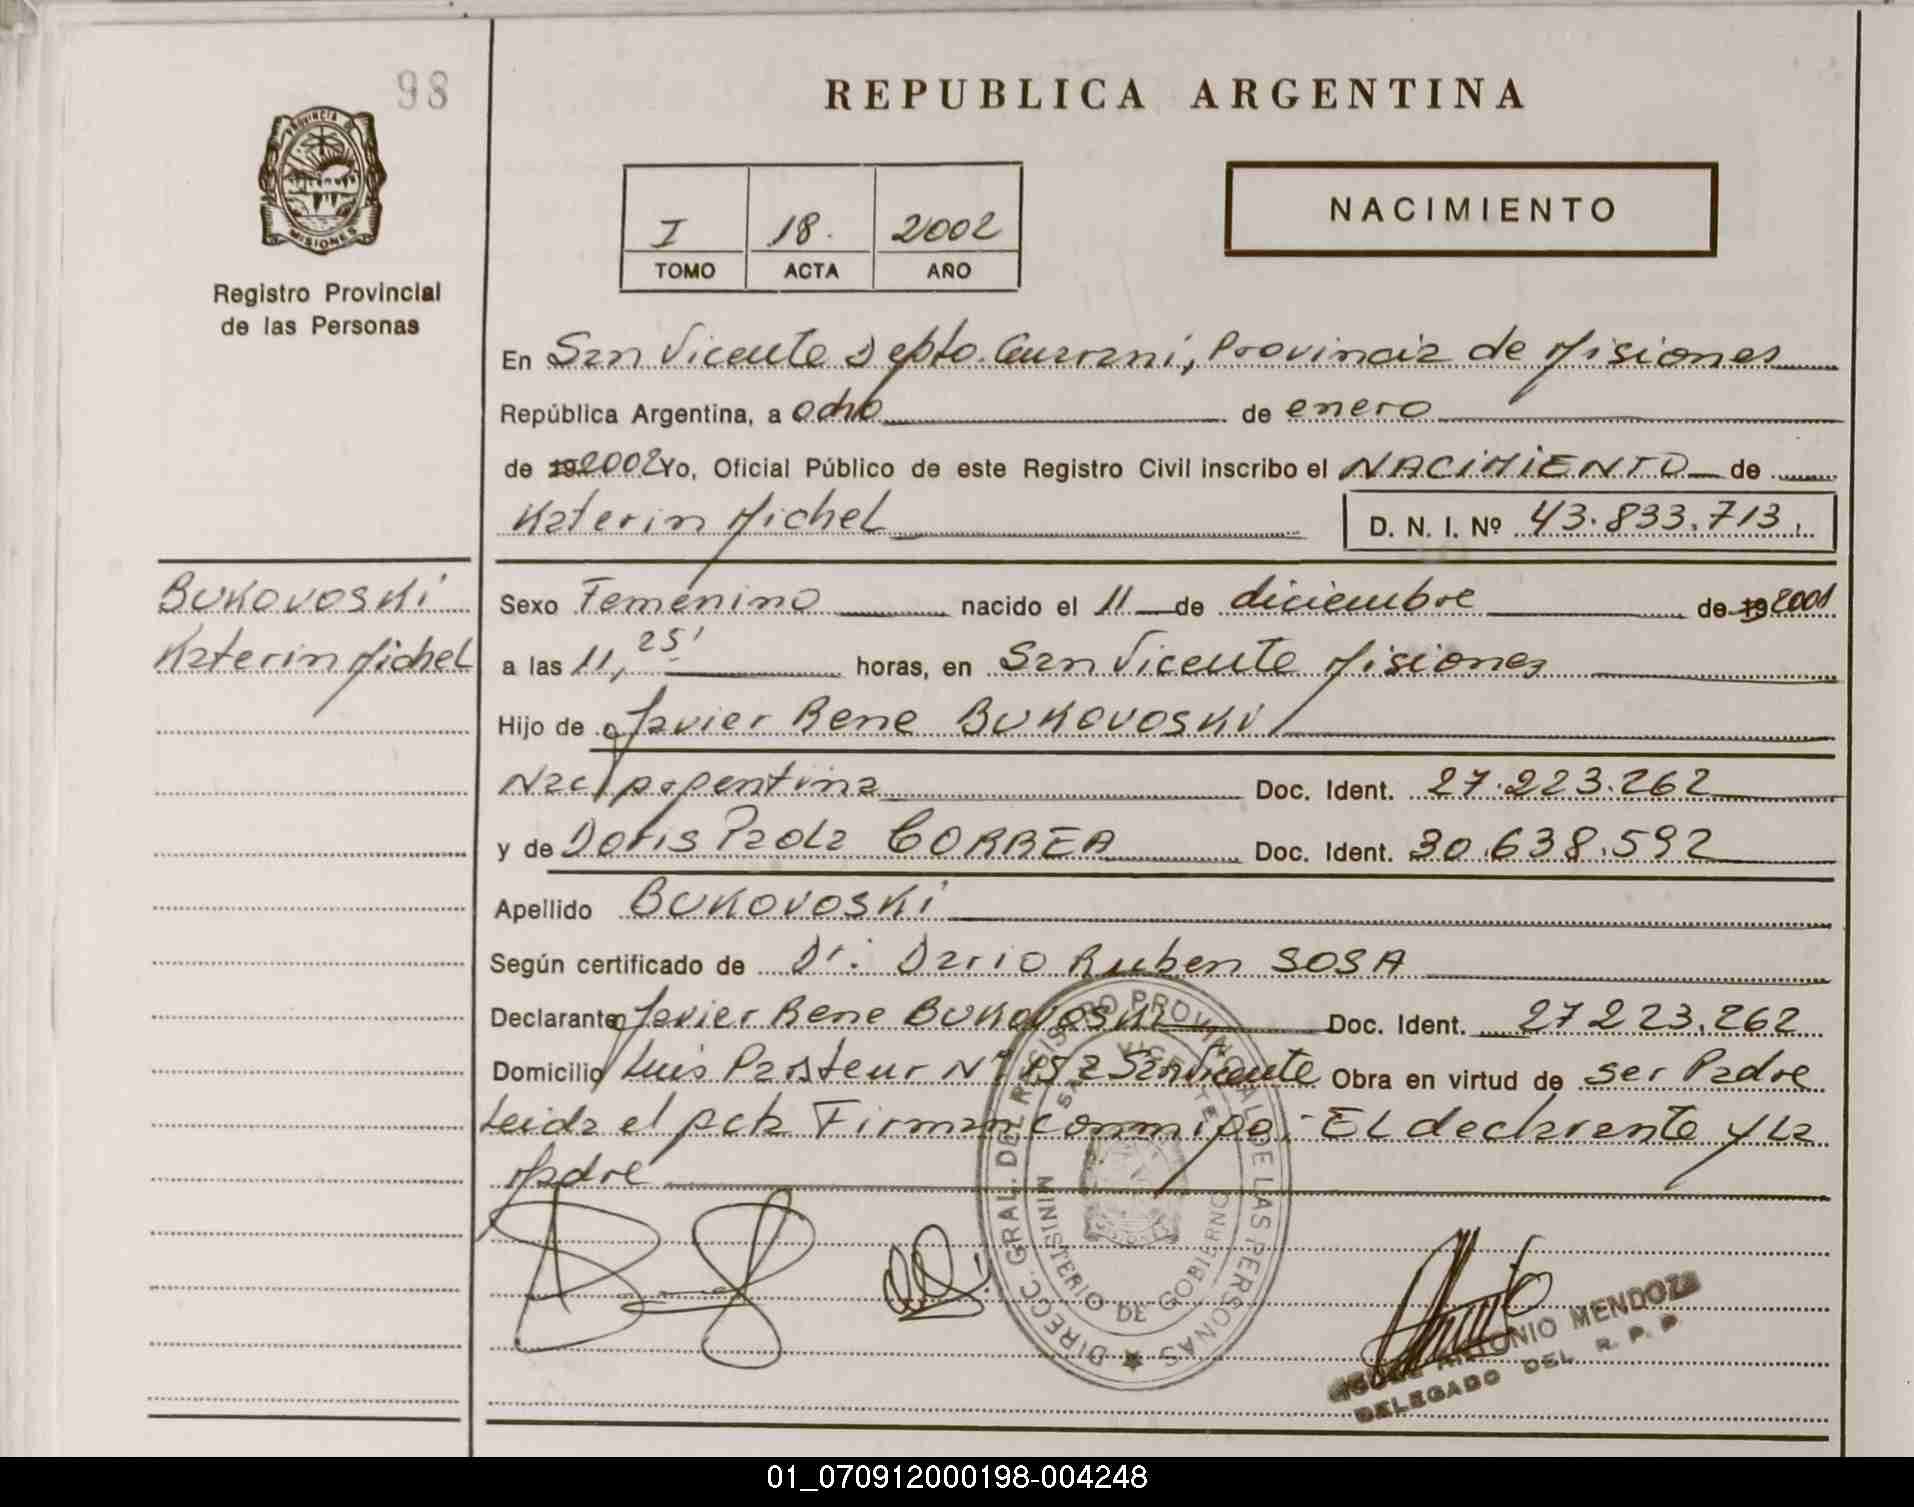 98
PROVINCIA DE
MISIONES
Registro Provincial
de las Personas
REPUBLICA ARGENTINA
I 18. 2002
TOMO ACTA AÑO
NACIMIENTO
En San Vicente Depto. Guarani, Provincia de Misiones
República Argentina, a ocho de enero
de 19 2002 Yo, Oficial Público de este Registro Civil inscribo el NACIMIENTO de
Katerin Michel D. N. I. Nº 43.833.713.
BUKOVOSKi
Katerin Michel
Sexo Femenino nacido el 11 de diciembre de 19 2001
a las 11,25' horas, en San Vicente Misiones
Hijo de Javier Rene BUKOVOSKi
Nac. Argentina Doc. Ident. 27.223.262
y de Doris Paola CORREA Doc. Ident. 30.638.592
Apellido BUKOVOSKi
Según certificado de Dr. Dario Ruben SOSA
Declarante Javier Rene BUKOVOSKi Doc. Ident. 27223.262
Domicilio Luis Pasteur Nº San Vicente Obra en virtud de ser Padre
Leida el acta Firman conmigo: El declarante y La
Madre
DIRECC. GRAL. DEL REGISTRO PROVINCIAL DE LAS PERSONAS
SAN VICENTE
MINISTERIO DE GOBIERNO
ANTONIO MENDOZA
DELEGADO DEL R. P. P.
01_070912000198-004248